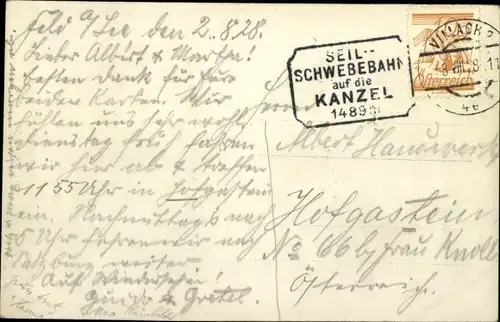 Feld a/See den 2. 8. 28.
Lieber Albert & Martha!
Besten Dank für Eure
beiden Karten. Wir
fühlen uns sehr wohl.
Dienstag früh fahren
wir hier ab & treffen
11 55 Uhr in Hofgastein
ein. Nachmittags nach
5 Uhr fahren wir nach
Salzburg weiter.
Auf Wiedersehen!
Guido & Gretel.
SEIL-
SCHWEBEBAHN
auf die
KANZEL
1489m
VILLACH 2
Österreich
Herrn
Albert Handwerk
Hofgastein
No 66 by Frau Knoll
Österreich.